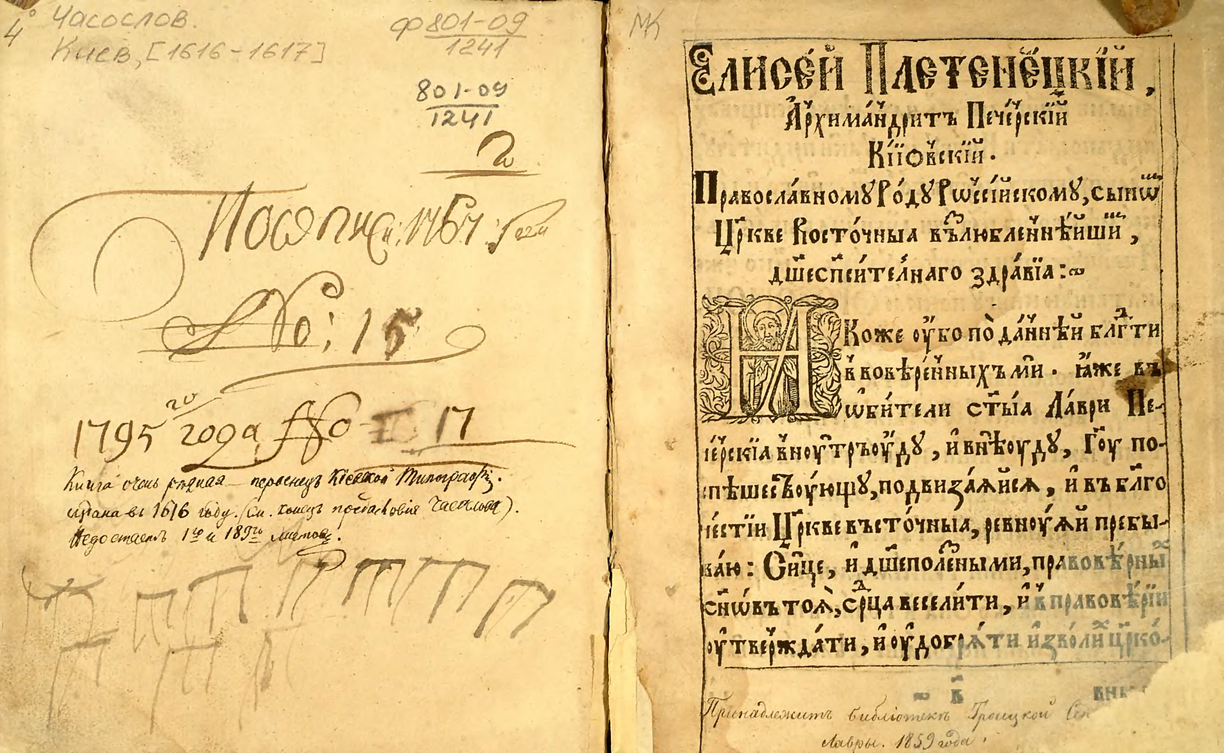 4°
Часослов.
Киев, [1616-1617]
ф801-09
1241
801-09
1241
№: 15
1795 го года №17
Книга очень редкая — первенецъ Кіевской Типографіи.
въ 1616 году. (См. конецъ предисловія Часослова).
Недостаетъ 1го и 189го листовъ.
МК
Елисей Плетенецкїй,
Архимандритъ Печерскїй
Кїıѡвскїй.
Православному Роду Рѡссїйскому, сынѡ
Црⷦ҇кве Восточныа възлюбленнѣйшиⷨ,
дш҃еспⷭ҇ителнаго здравїа:~
Ꙗкоже оубо по даннѣй блгⷣти
и въвѣренныхъ ми. ꙗже въ
ѡбители ст҃ыа Лаври Пе-
черскїа внꙋтръоуду, и внѣоуду, Гꙋ҇ по-
спѣшествꙋющꙋ, подвизаѧйсѧ, и въ блго
честїи Црⷦ҇кве въсточныа, ревнꙋѧй пребы-
ваю: Сице, и дш҃еполезными, правовѣрныⷯ
сн҃ѡвъ тоѧ, срⷣца веселити, и в правовѣрїи
оутвержⷣати, и оудобрѧти изволиⷯ црⷦ҇ко-
Принадлежитъ библіотекѣ Троицкой
Лавры. 1859 года.